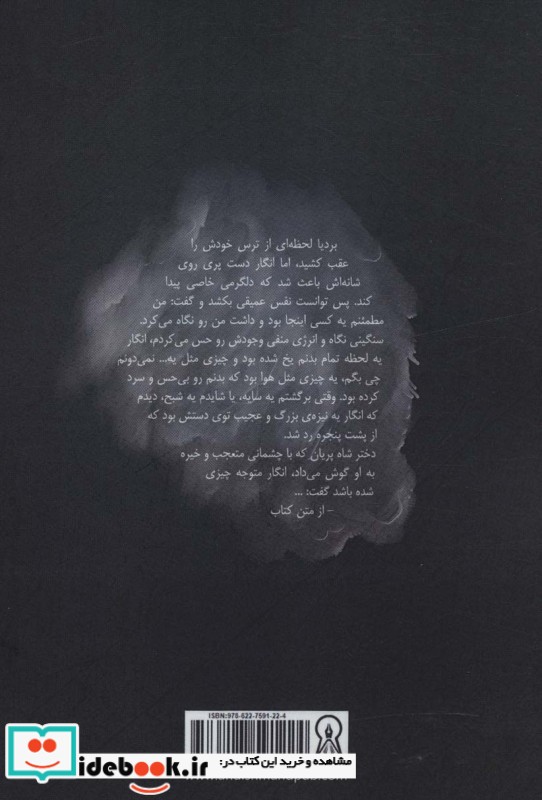 بردیا لحظه‌ای از ترس خودش را
عقب کشید، اما انگار دست پری روی
شانه‌اش باعث شد که دلگرمی خاصی پیدا
کند. پس توانست نفس عمیقی بکشد و گفت: من
مطمئنم یه کسی اینجا بود و داشت من رو نگاه می‌کرد.
سنگینی نگاه و انرژی منفی وجودش رو حس می‌کردم، انگار
یه لحظه تمام بدنم یخ شده بود و چیزی مثل یه... نمی‌دونم
چی بگم، یه چیزی مثل هوا بود که بدنم رو بی‌حس و سرد
کرده بود. وقتی برگشتم یه سایه، یا شایدم یه شبح، دیدم
که انگار یه نیزه‌ی بزرگ و عجیب توی دستش بود که
از پشت پنجره رد شد.
دختر شاه پریان که با چشمانی متعجب و خیره
به او گوش می‌داد، انگار متوجه چیزی
شده باشد گفت: ...
- از متن کتاب
ISBN: 978-622-7591-22-4
مشاهده و خرید این کتاب در:
idebook.ir